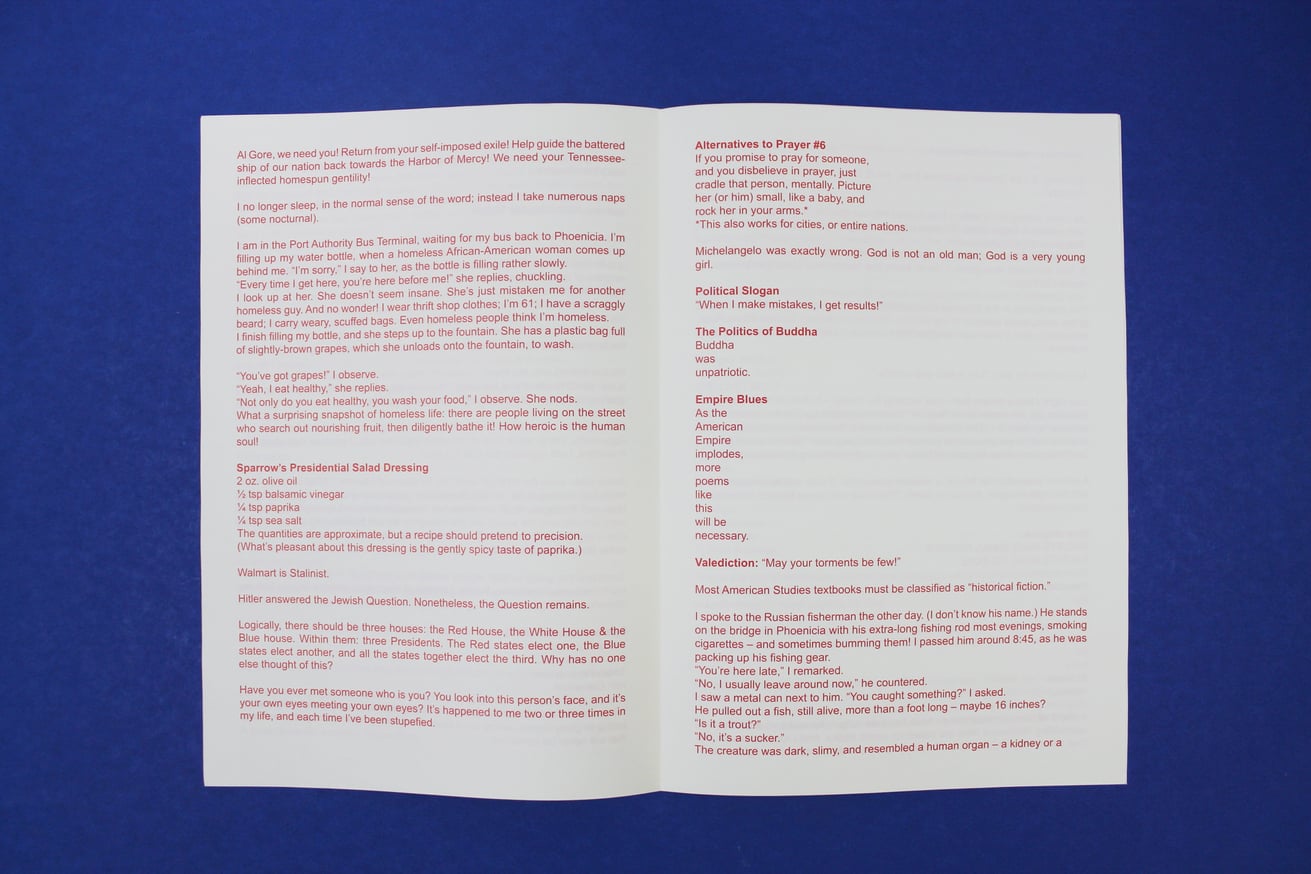 Al Gore, we need you! Return from your self-imposed exile! Help guide the battered
ship of our nation back towards the Harbor of Mercy! We need your Tennessee-
inflected homespun gentility!
I no longer sleep, in the normal sense of the word; instead I take numerous naps
(some nocturnal).
I am in the Port Authority Bus Terminal, waiting for my bus back to Phoenicia. I'm
filling up my water bottle, when a homeless African-American woman comes up
behind me. "I'm sorry," I say to her, as the bottle is filling rather slowly.
"Every time I get here, you're here before me!" she replies, chuckling.
I look up at her. She doesn't seem insane. She's just mistaken me for another
homeless guy. And no wonder! I wear thrift shop clothes; I'm 61; I have a scraggly
beard; I carry weary, scuffed bags. Even homeless people think I'm homeless.
I finish filling my bottle, and she steps up to the fountain. She has a plastic bag full
of slightly-brown grapes, which she unloads onto the fountain, to wash.
"You've got grapes!" I observe.
"Yeah, I eat healthy," she replies.
"Not only do you eat healthy, you wash your food," I observe. She nods.
What a surprising snapshot of homeless life: there are people living on the street
who search out nourishing fruit, then diligently bathe it! How heroic is the human
soul!
Sparrow's Presidential Salad Dressing
2 oz. olive oil
½ tsp balsamic vinegar
¼ tsp paprika
¼ tsp sea salt
The quantities are approximate, but a recipe should pretend to precision.
(What's pleasant about this dressing is the gently spicy taste of paprika.)
Walmart is Stalinist.
Hitler answered the Jewish Question. Nonetheless, the Question remains.
Logically, there should be three houses: the Red House, the White House & the
Blue house. Within them: three Presidents. The Red states elect one, the Blue
states elect another, and all the states together elect the third. Why has no one
else thought of this?
Have you ever met someone who is you? You look into this person's face, and it's
your own eyes meeting your own eyes? It's happened to me two or three times in
my life, and each time I've been stupefied.
Alternatives to Prayer #6
If you promise to pray for someone,
and you disbelieve in prayer, just
cradle that person, mentally. Picture
her (or him) small, like a baby, and
rock her in your arms.*
*This also works for cities, or entire nations.
Michelangelo was exactly wrong. God is not an old man; God is a very young
girl.
Political Slogan
"When I make mistakes, I get results!"
The Politics of Buddha
Buddha
was
unpatriotic.
Empire Blues
As the
American
Empire
implodes,
more
poems
like
this
will be
necessary.
Valediction: "May your torments be few!"
Most American Studies textbooks must be classified as "historical fiction."
I spoke to the Russian fisherman the other day. (I don't know his name.) He stands
on the bridge in Phoenicia with his extra-long fishing rod most evenings, smoking
cigarettes – and sometimes bumming them! I passed him around 8:45, as he was
packing up his fishing gear.
"You're here late," I remarked.
"No, I usually leave around now," he countered.
I saw a metal can next to him. "You caught something?" I asked.
He pulled out a fish, still alive, more than a foot long – maybe 16 inches?
"Is it a trout?"
"No, it's a sucker."
The creature was dark, slimy, and resembled a human organ – a kidney or a